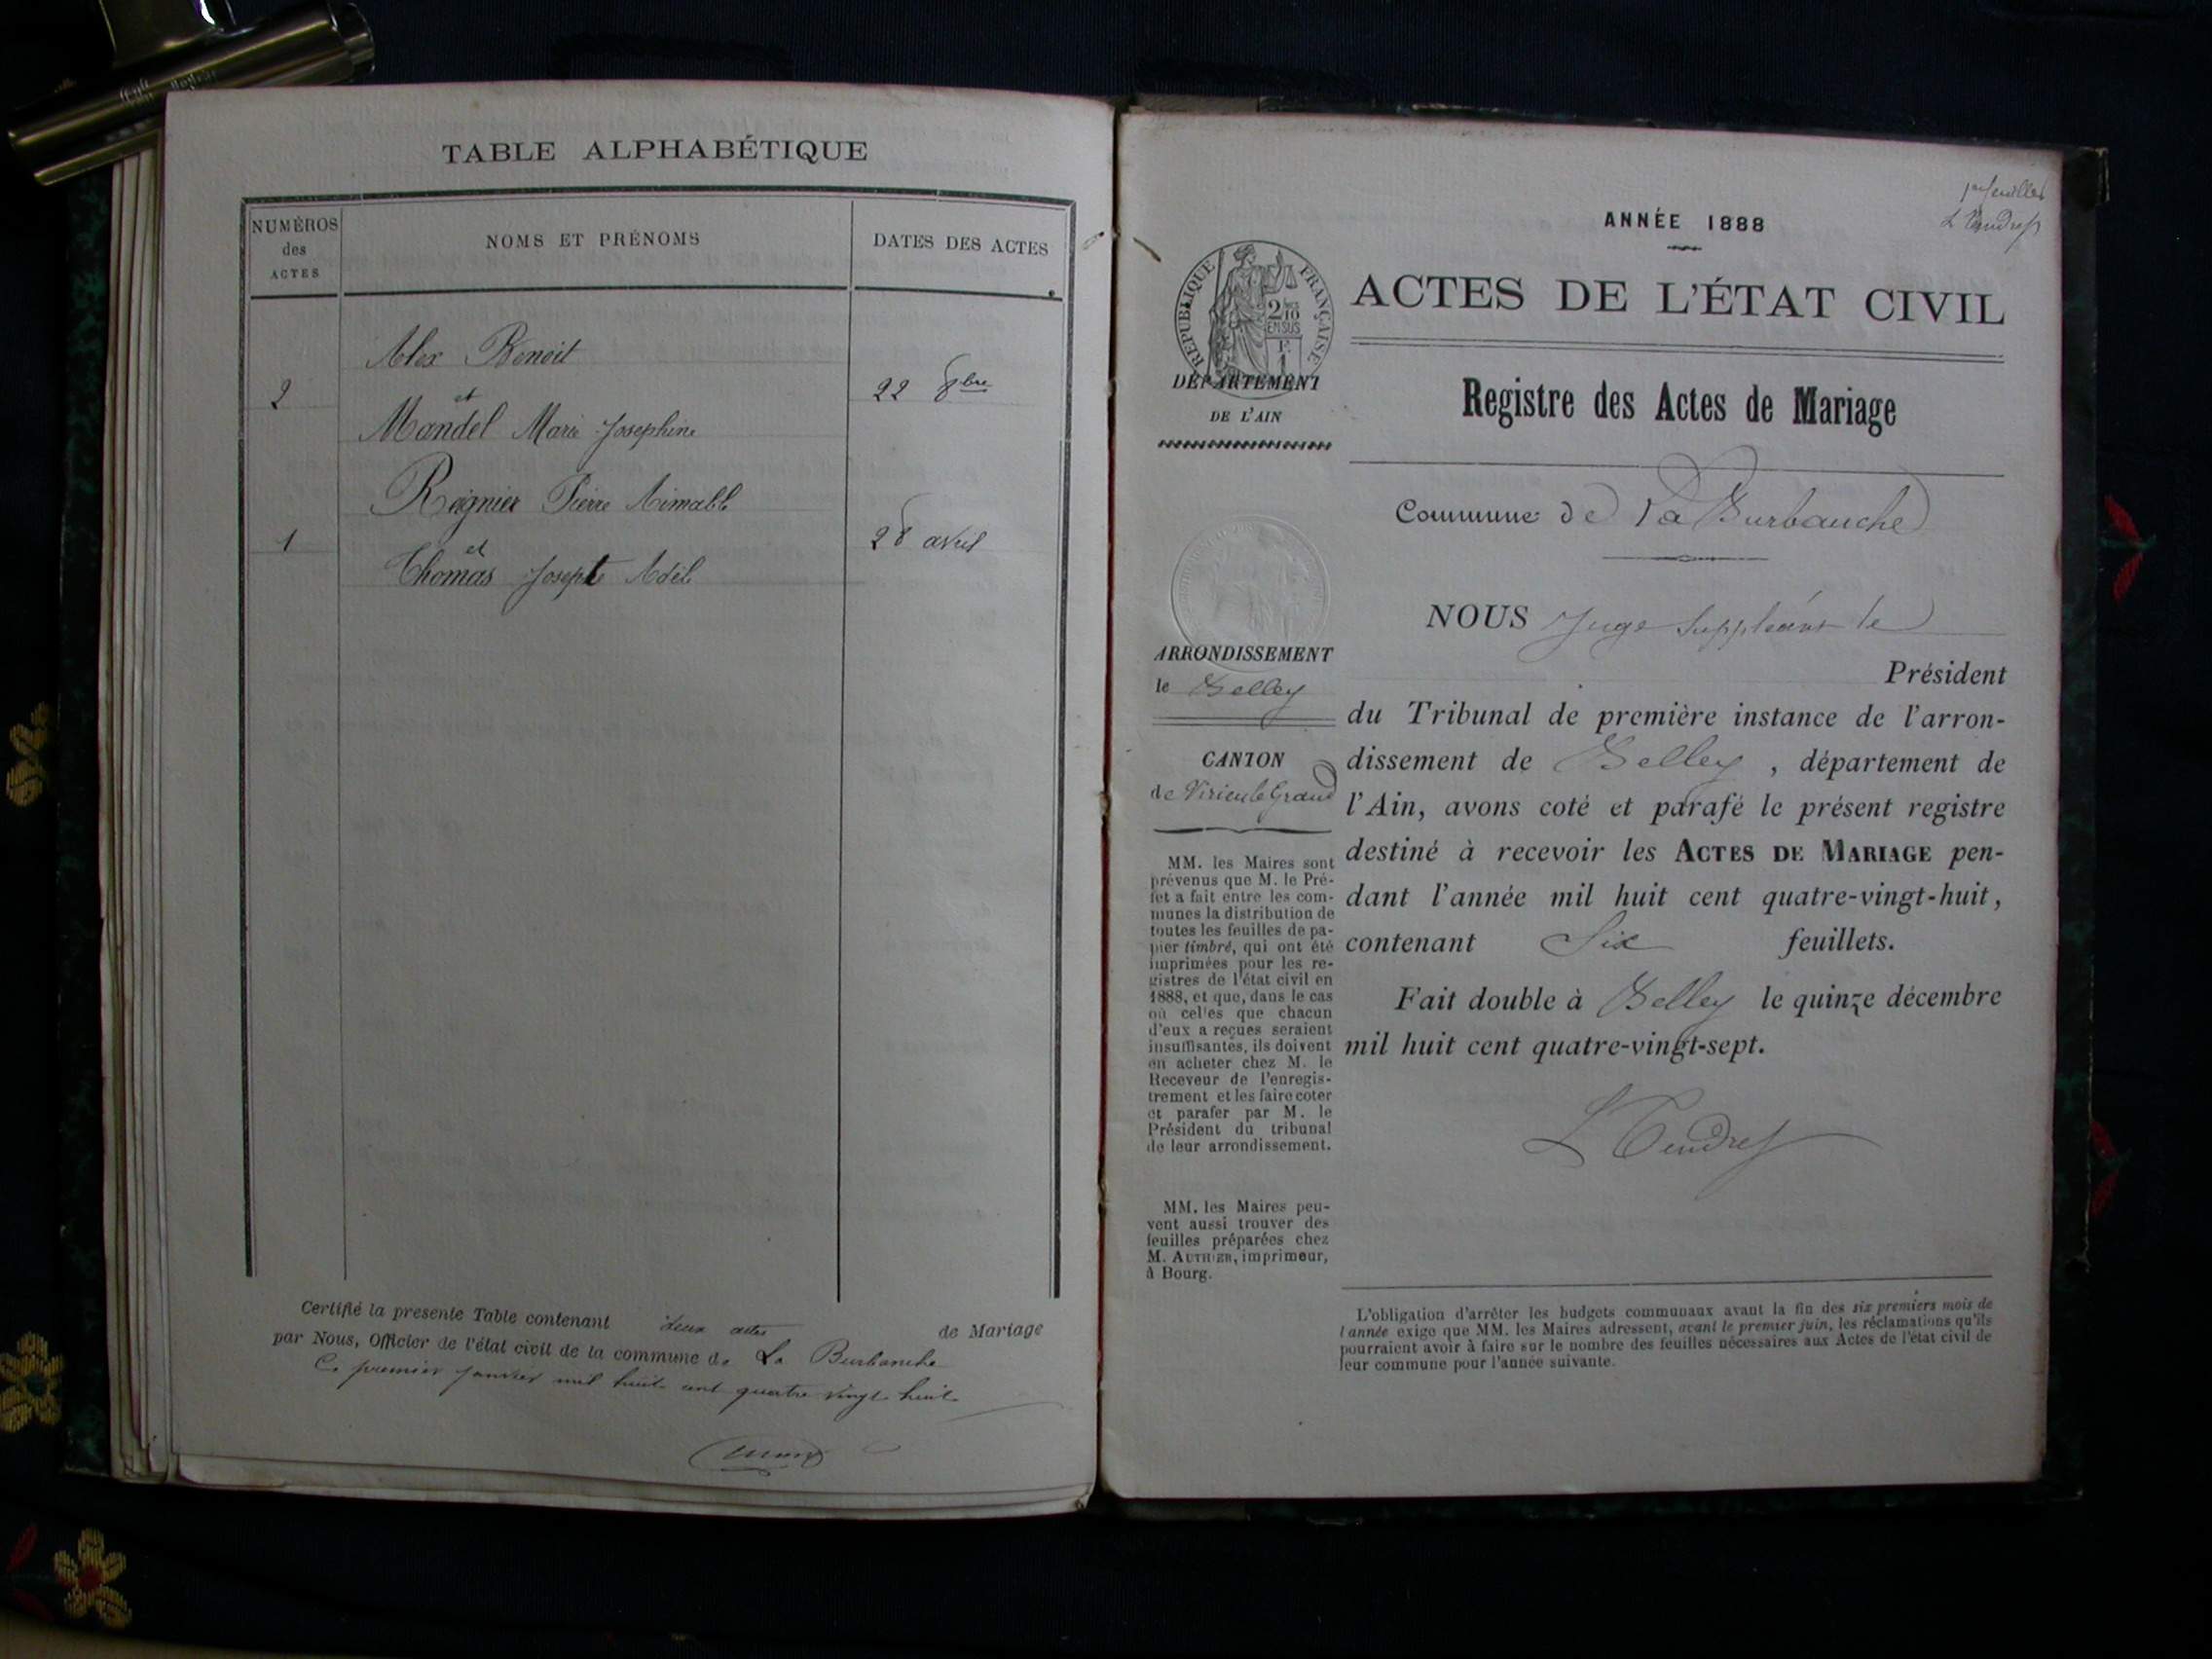 TABLE ALPHABÉTIQUE
NUMÉROS
des
ACTES
NOMS ET PRÉNOMS
DATES DES ACTES
Alex Benoit
2
et
22 8bre
Mandel Marie Josephine
Reignier Pierre Aimable
1
et
28 avril
Thomas Josephte Adèle
Certifié la presente Table contenant deux actes de Mariage
par Nous, Officier de l'état civil de la commune de La Burbanche
Ce premier janvier mil huit cent quatre vingt huit
1er feuillet
L Tendret
ANNÉE 1888
RÉPUBLIQUE FRANÇAISE
2/10
EN SUS
F.
1
ACTES DE L'ÉTAT CIVIL
DÉPARTEMENT
DE L'AIN
Registre des Actes de Mariage
Commune de La Burbanche
NOUS Juge suppléant le
Président
ARRONDISSEMENT
de Belley
du Tribunal de première instance de l'arron-
dissement de Belley, département de
l'Ain, avons coté et parafé le présent registre
destiné à recevoir les ACTES DE MARIAGE pen-
dant l'année mil huit cent quatre-vingt-huit,
contenant Six feuillets.
Fait double à Belley le quinze décembre
mil huit cent quatre-vingt-sept.
L Tendret
CANTON
de Virieu le Grand
MM. les Maires sont
prévenus que M. le Pré-
fet a fait entre les com-
munes la distribution de
toutes les feuilles de pa-
pier timbré, qui ont été
imprimées pour les re-
gistres de l'état civil en
1888, et que, dans le cas
où celles que chacun
d'eux a reçues seraient
insuffisantes, ils doivent
en acheter chez M. le
Receveur de l'enregis-
trement et les faire coter
et parafer par M. le
Président du tribunal
de leur arrondissement.
MM. les Maires peu-
vent aussi trouver des
feuilles préparées chez
M. AUTHIER, imprimeur,
à Bourg.
L'obligation d'arrêter les budgets communaux avant la fin des six premiers mois de
l'année exige que MM. les Maires adressent, avant le premier juin, les réclamations qu'ils
pourraient avoir à faire sur le nombre des feuilles nécessaires aux Actes de l'état civil de
leur commune pour l'année suivante.